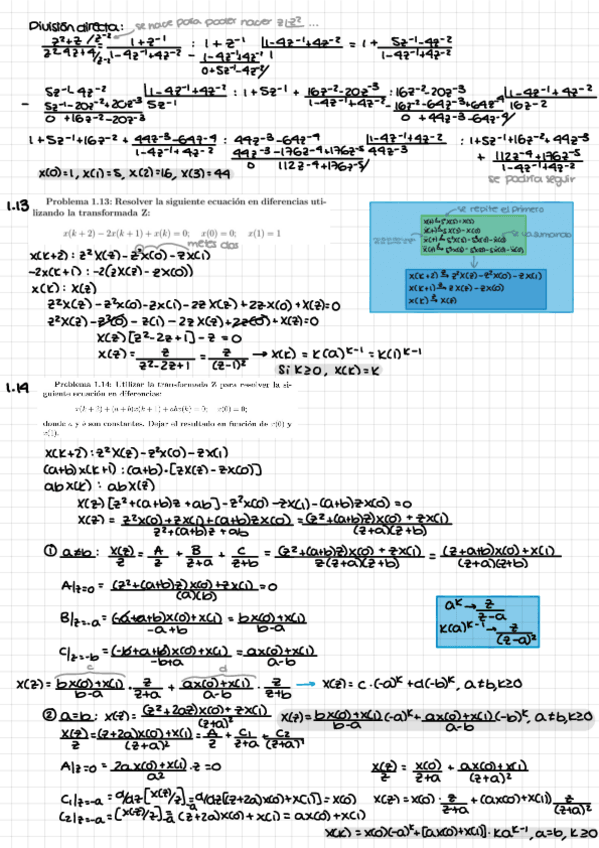 División directa: se hace para poder hacer z1·z² ...
z²+z /z⁻² / z²-4z+4 /z⁻² = 1+z⁻¹ / 1-4z⁻¹+4z⁻² : 1+z⁻¹ |1-4z⁻¹+4z⁻² = 1 + 5z⁻¹-4z⁻² / 1-4z⁻¹+4z⁻²
- 1-4z⁻¹+4z⁻² 1
0+5z⁻¹-4z⁻²
5z⁻¹-4z⁻² |1-4z⁻¹+4z⁻² : 1+5z⁻¹ + 16z⁻²-20z⁻³ / 1-4z⁻¹+4z⁻² : 16z⁻²-20z⁻³ |1-4z⁻¹+4z⁻²
- 5z⁻¹-20z⁻²+20z⁻³ 5z⁻¹ -16z⁻²-64z⁻³+64z⁻⁴ 16z⁻²
0 +16z⁻²-20z⁻³ 0 +44z⁻³-64z⁻⁴
1+5z⁻¹+16z⁻² + 44z⁻³-64z⁻⁴ / 1-4z⁻¹+4z⁻² : 44z⁻³-64z⁻⁴ |1-4z⁻¹+4z⁻² : 1+5z⁻¹+16z⁻²+44z⁻³
44z⁻³-176z⁻⁴+176z⁻⁵ 44z⁻³ + 112z⁻⁴+176z⁻⁵ / 1-4z⁻¹+4z⁻²
0 112z⁻⁴+176z⁻⁵
x(0)=1, x(1)=5, x(2)=16, x(3)=44 se podría seguir
1.13 Problema 1.13: Resolver la siguiente ecuación en diferencias uti-
lizando la transformada Z:
x(k+2) − 2x(k+1) + x(k) = 0; x(0) = 0; x(1) = 1
metes dos
se repite el primero
x(k+2): z²X(z)-z²x(0)-zx(1)
-2x(k+1): -2(zX(z)-zx(0))
x(k): X(z)
x(k+2) → z²X(z)-z²x(0)-zx(1)
x(k+1) → zX(z)-zx(0)
x(k) → X(z)
z²X(z)-z²x(0)-zx(1)-2zX(z)+2zx(0)+X(z)=0
z²X(z)-z²(0)-z(1)-2zX(z)+2z(0)+X(z)=0
X(z)[z²-2z+1]-z=0
X(z)= z / z²-2z+1 = z / (z-1)² → x(k)=k(a)ᵏ⁻¹=k(1)ᵏ⁻¹
Si k≥0, x(k)=k
1.14 Problema 1.14: Utilizar la transformada Z para resolver la si-
guiente ecuación en diferencias:
x(k+2) + (a+b)x(k+1) + abx(k) = 0; x(0) = 0;
donde a y b son constantes. Dejar el resultado en función de x(0) y
x(1).
x(k+2): z²X(z)-z²x(0)-zx(1)
(a+b)x(k+1): (a+b)·[zX(z)-zx(0)]
abx(k): abX(z)
X(z)[z²+(a+b)z+ab]-z²x(0)-zx(1)-(a+b)zx(0)=0
X(z)= z²x(0)+zx(1)+(a+b)zx(0) / z²+(a+b)z+ab = (z²+(a+b)z)x(0)+zx(1) / (z+a)(z+b)
① a≠b: X(z)/z = A/z + B/z+a + C/z+b = (z²+(a+b)z)x(0)+zx(1) / z(z+a)(z+b) = (z+a+b)x(0)+x(1) / (z+a)(z+b)
A/z=0 = (z²+(a+b)z)x(0)+zx(1) / (a)(b) = 0
B/z=-a = (-a+a+b)x(0)+x(1) / -a+b = bx(0)+x(1) / b-a
aᵏ → z / z-a
k(a)ᵏ⁻¹ → z / (z-a)²
C/z=-b = (-b+a+b)x(0)+x(1) / -b+a = ax(0)+x(1) / a-b
c d
X(z)= bx(0)+x(1) / b-a · z / z+a + ax(0)+x(1) / a-b · z / z+b → X(z)=c·(-a)ᵏ+d(-b)ᵏ, a≠b, k≥0
② a=b: X(z)= (z²+2az)x(0)+zx(1) / (z+a)² X(z)= bx(0)+x(1) / b-a (-a)ᵏ + ax(0)+x(1) / a-b (-b)ᵏ, a≠b, k≥0
X(z)/z = (z+2a)x(0)+x(1) / (z+a)² = A/z + C1/z+a + C2/(z+a)²
A/z=0 = 2ax(0)+x(1) / a² · z=0 X(z)/z = x(0) / z+a + ax(0)+x(1) / (z+a)²
C1/z=-a = d/dz[X(z)/z] = d/dz[(z+2a)x(0)+x(1)] = x(0) X(z)=x(0)· z / z+a + (ax(0)+x(1)) z / (z+a)²
C2/z=-a = [X(z)/z] = (z+2a)x(0)+x(1) = ax(0)+x(1)
x(k)=x(0)(-a)ᵏ+[ax(0)+x(1)]·kaᵏ⁻¹, a=b, k≥0